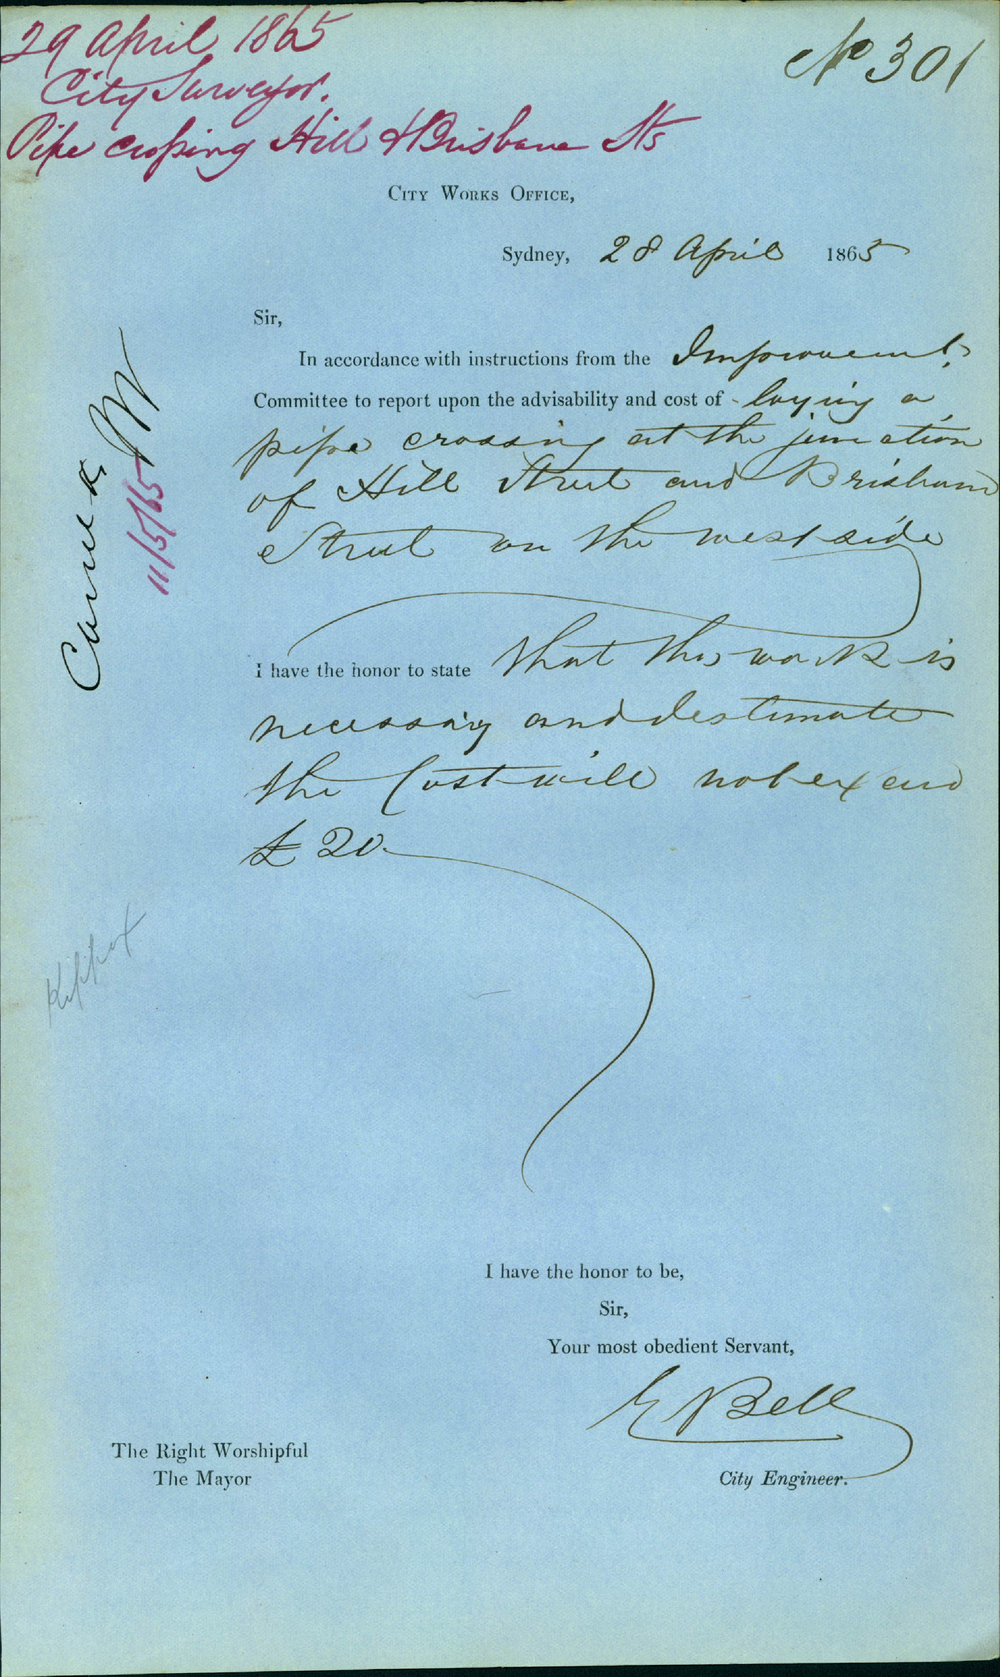 29 April 1865
City Surveyor.
Pipe crossing Hill & Brisbane Sts
No 301
City Works Office,
Sydney, 28 April 1865
Sir,
In accordance with instructions from the Improvement
Committee to report upon the advisability and cost of laying a
pipe crossing at the junction
of Hill Street and Brisbane
Street on the west side
I have the honor to state that this work is
necessary and I estimate
the Cost will not exceed
£20.
11/5/65
I have the honor to be,
Sir,
Your most obedient Servant,
E Bell
City Engineer.
The Right Worshipful
The Mayor